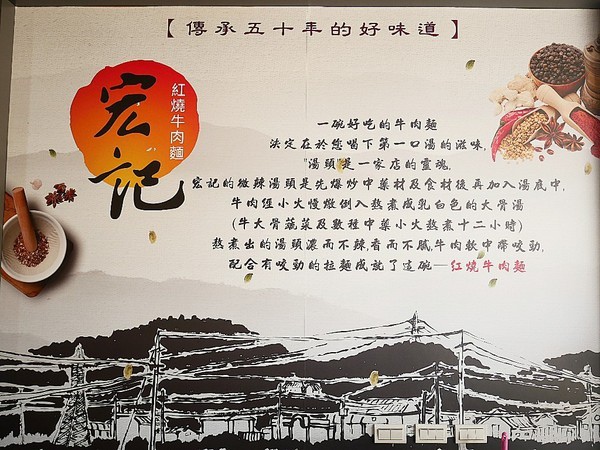 【傳承五十年的好味道】
宏記
紅燒牛肉麵
一碗好吃的牛肉麵
決定在於您喝下第一口湯的滋味,
"湯頭"是一家店的靈魂,
宏記的微辣湯頭是先爆炒中藥材及食材後再加入湯底中,
牛肉經小火慢燉倒入熬煮成乳白色的大骨湯
(牛大骨蔬菜及數種中藥小火熬煮十二小時)
熬煮出的湯頭濃而不辣香而不膩牛肉軟中帶咬勁,
配合有咬勁的拉麵成就了這碗—紅燒牛肉麵